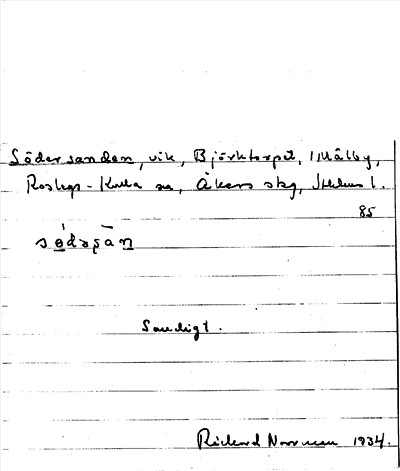 Södersanden, vik, Björktorpet, Målby,
Roslags-Kulla sn, Åkers skg, Sthlms l.
85
södəʂān
Sandigt.
Rickard Norrman 1934.